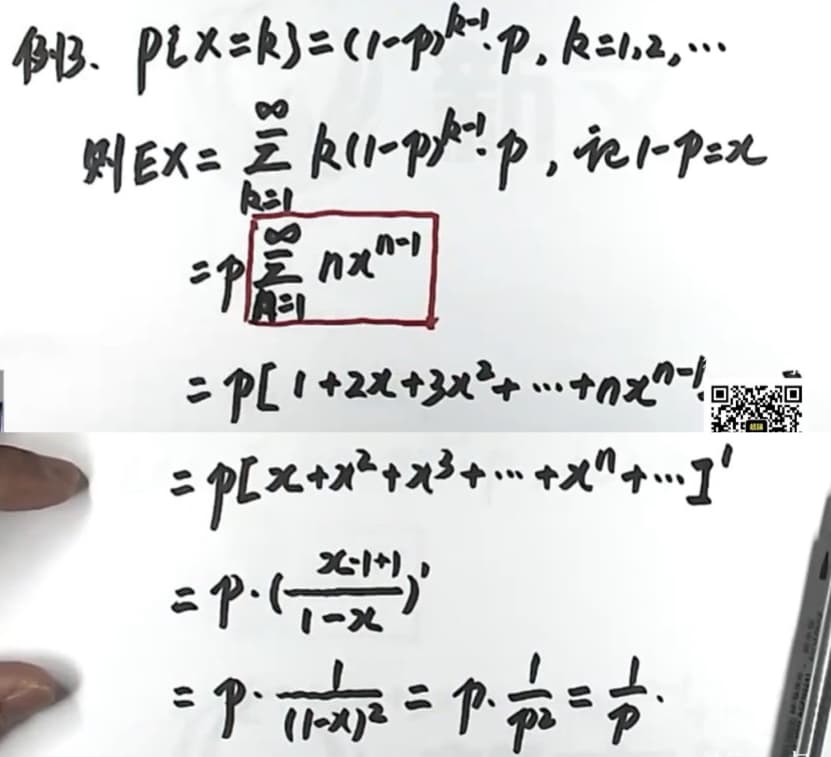 例13. P{X=k}=(1-p)^{k-1}·p, k=1,2,…
则EX=∑_{k=1}^{∞} k(1-p)^{k-1}·p, 记1-p=x
=p ∑_{n=1}^{∞} nx^{n-1}
=p[1+2x+3x²+…+nx^{n-1}
=p[x+x²+x³+…+xⁿ+…]'
=p·(\frac{x-1+1}{1-x})'
=p·\frac{1}{(1-x)²}=p·\frac{1}{p²}=\frac{1}{p}.